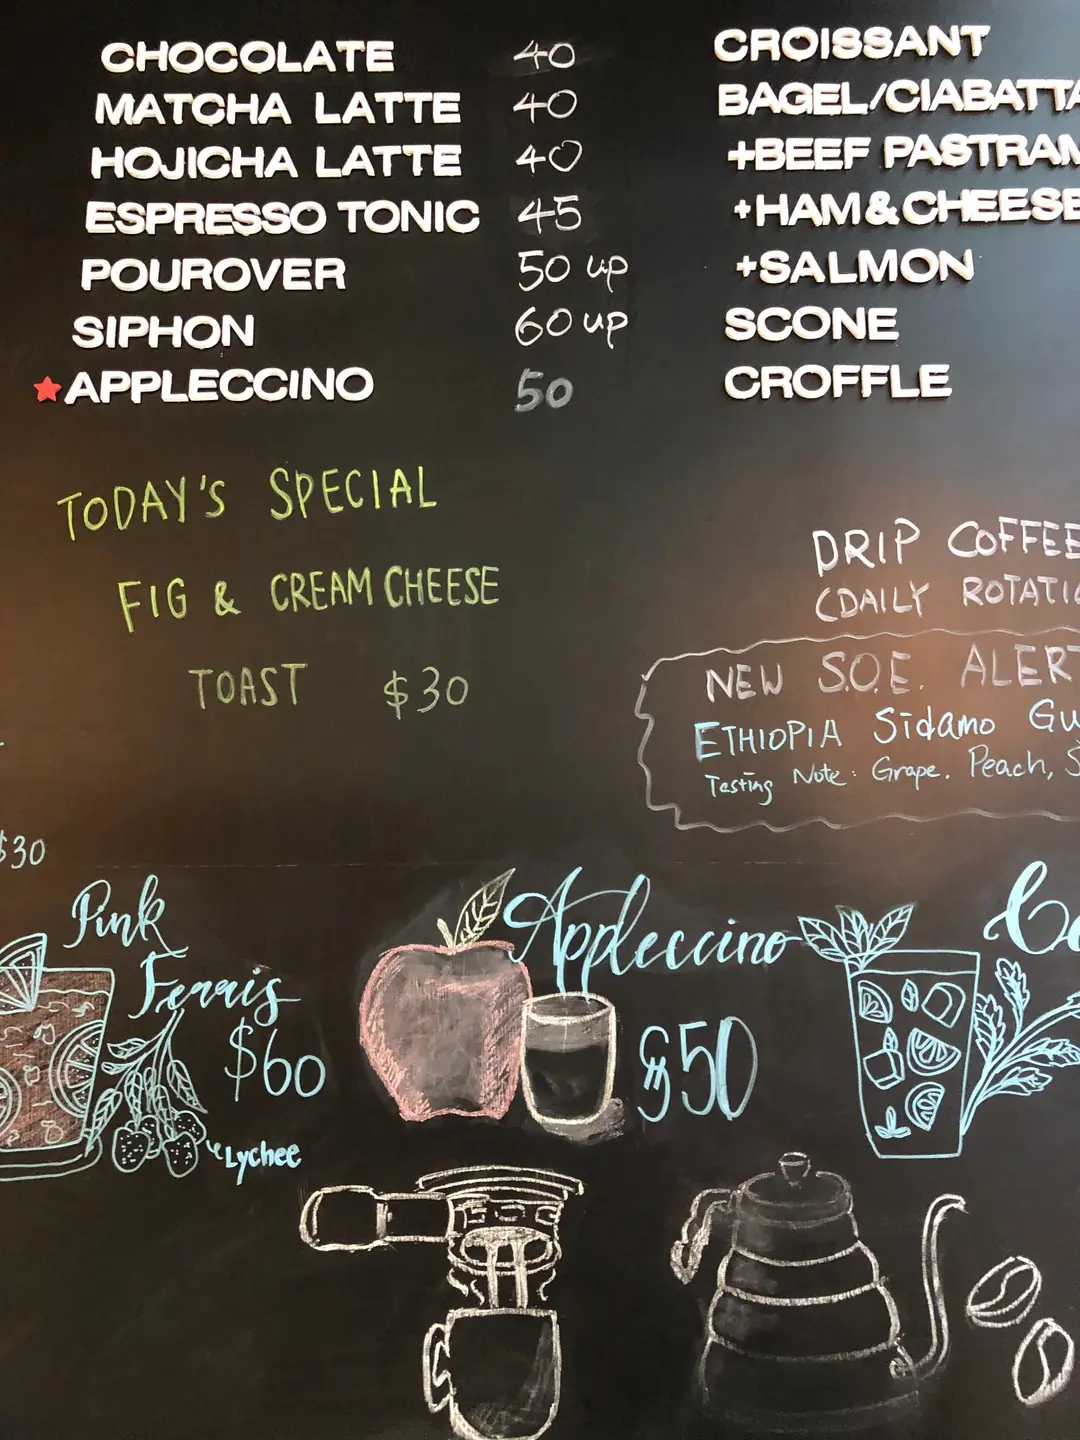 CHOCOLATE 40
MATCHA LATTE 40
HOJICHA LATTE 40
ESPRESSO TONIC 45
POUROVER 50 up
SIPHON 60 up
APPLECCINO 50
CROISSANT
BAGEL/CIABATTA
+BEEF PASTRAM
+HAM&CHEESE
+SALMON
SCONE
CROFFLE
TODAY'S SPECIAL
FIG & CREAM CHEESE
TOAST $30
DRIP COFFEE
(DAILY ROTATIO
NEW S.O.E. ALERT
ETHIOPIA Sidamo Gu
Testing Note: Grape. Peach, S
$30
Pink
Ferris
$60
Lychee
Appleccino
$50